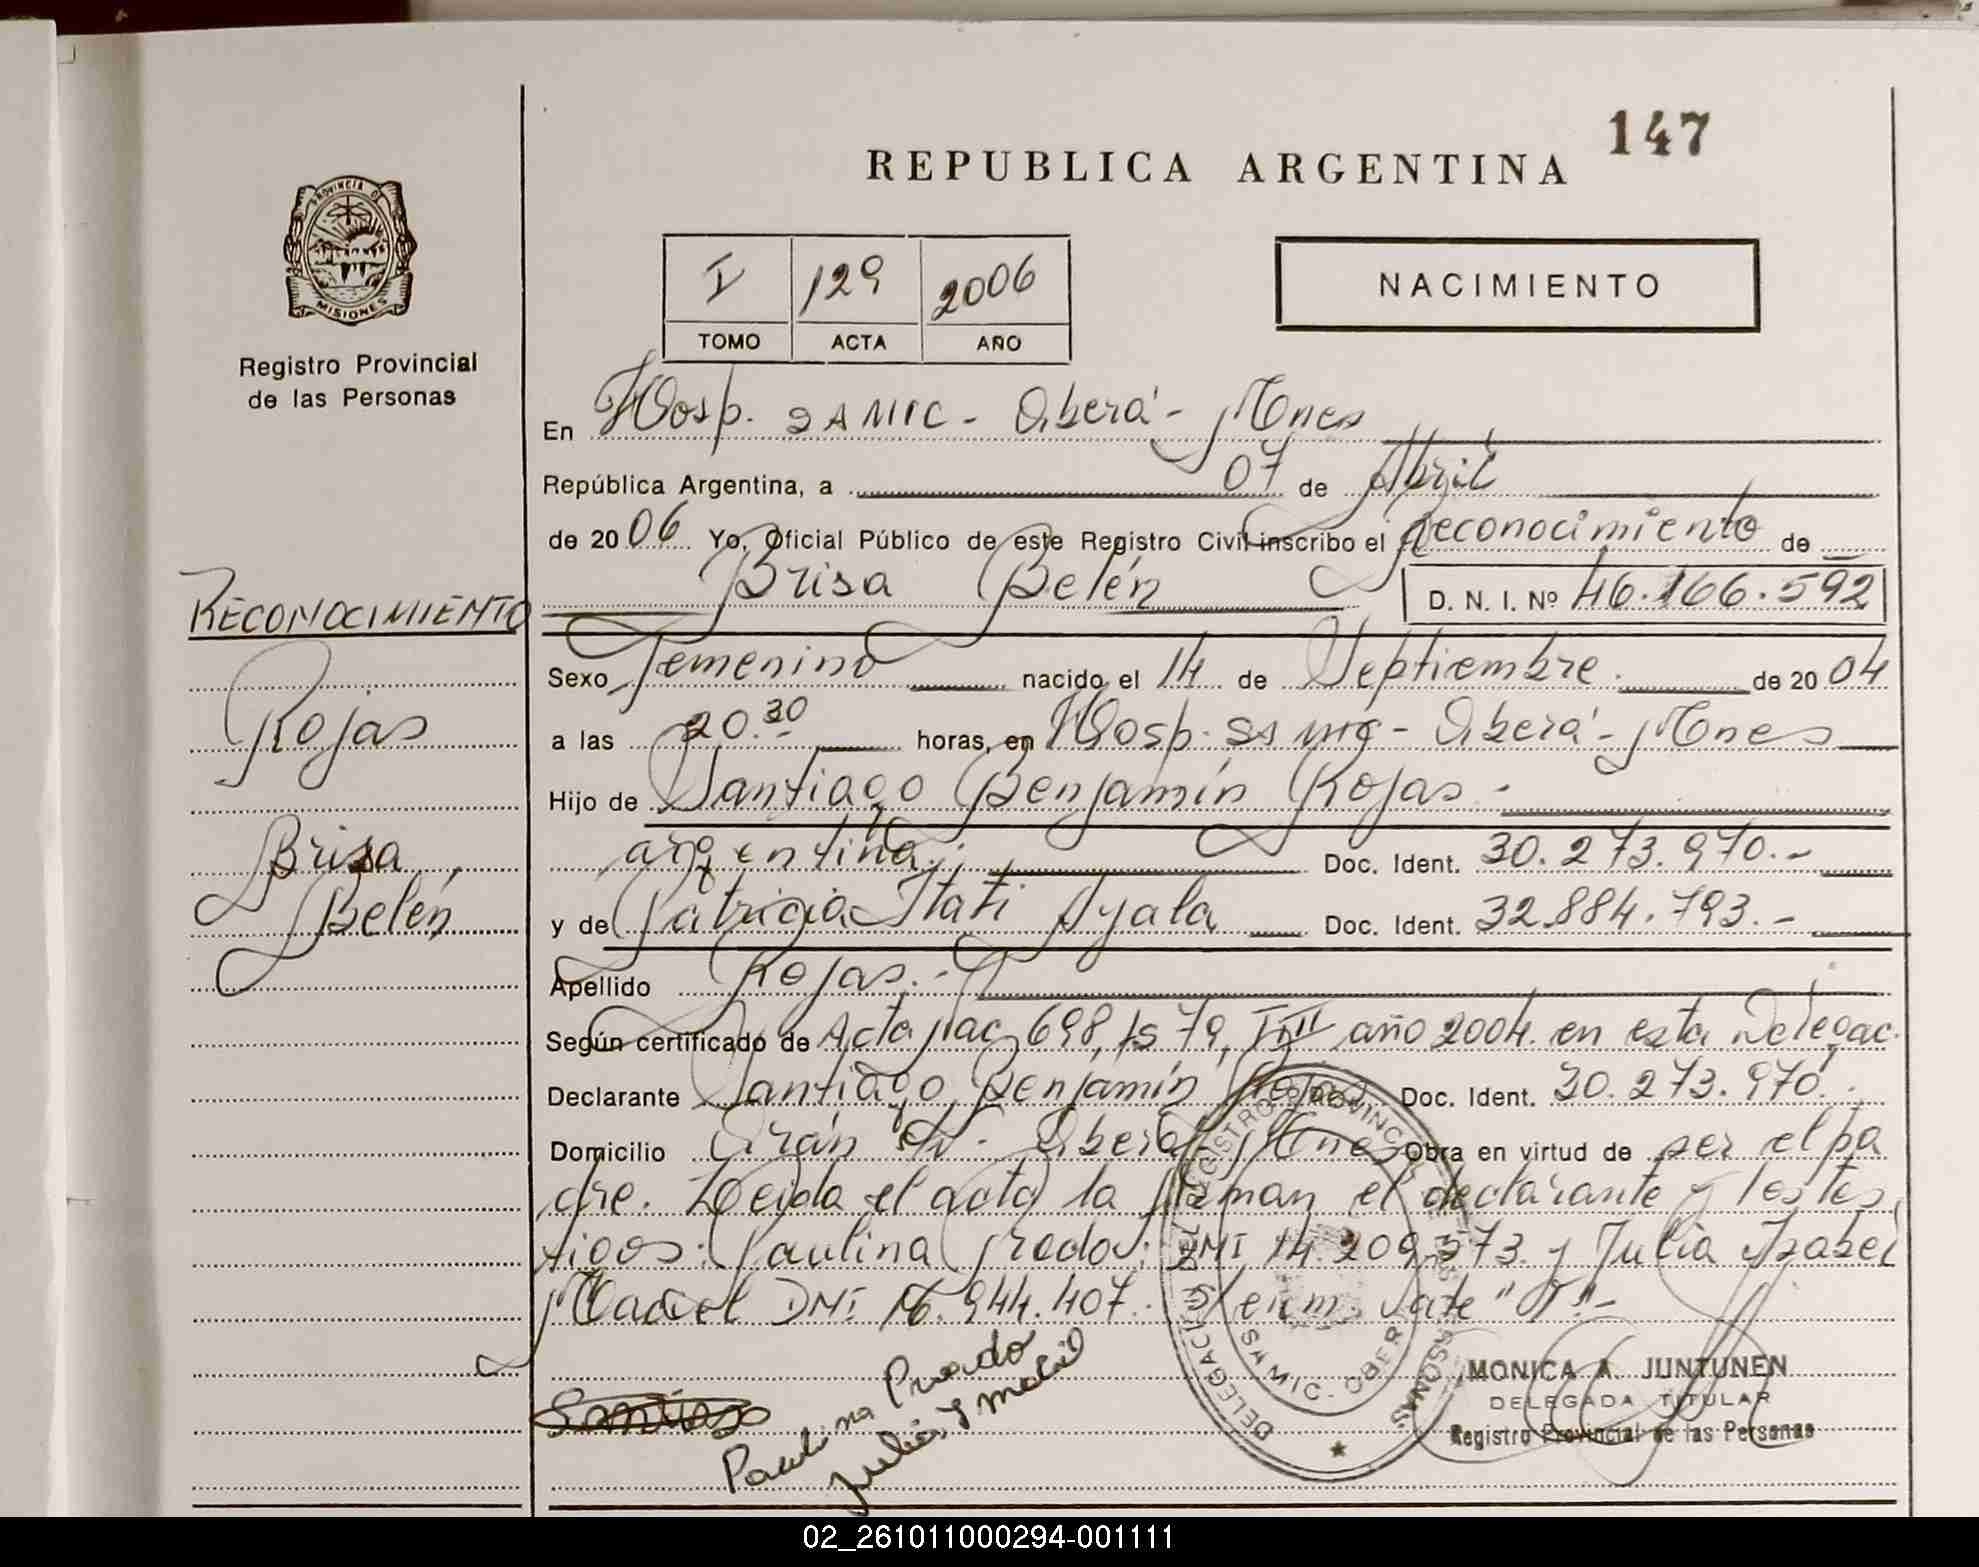 147
REPUBLICA ARGENTINA
PROVINCIA DE
MISIONES
Registro Provincial
de las Personas
I 129 2006
TOMO ACTA AÑO
NACIMIENTO
En Hosp. SAMIC - Oberá - Mnes
República Argentina, a 07 de Abril
de 2006 Yo, Oficial Público de este Registro Civil inscribo el reconocimiento de
Brisa Belén D. N. I. Nº 46.166.592
RECONOCIMIENTO
Rojas
Brisa
Belén
Sexo Femenino nacido el 14 de Septiembre. de 2004
a las 20.30 horas, en Hosp. SAMIC - Oberá - Mnes
Hijo de Santiago Benjamín Rojas -
argentina. Doc. Ident. 30.273.970.-
y de Patricia Itatí Ayala Doc. Ident. 32.884.793.-
Apellido Rojas.-
Según certificado de Acta Nac. 698, fs 79, año 2004. en esta Delegac.
Declarante Santiago Benjamín Rojas Doc. Ident. 30.273.970.
Domicilio Orán Oberá Mnes Obra en virtud de ser el pa
dre. Leída el acta la firman el declarante y los tes
tigos: Paulina Prado, DNI 14.209.573. y Julia Isabel
Maciel DNI 16.944.407.- S/enm. vale
Santiago
Paulina Prado
Julia Y maciel
DELEGACION DEL REGISTRO PROVINCIAL DE LAS PERSONAS
SAMIC - OBERA
MONICA A. JUNTUNEN
DELEGADA TITULAR
Registro Provincial de las Personas
02_261011000294-001111